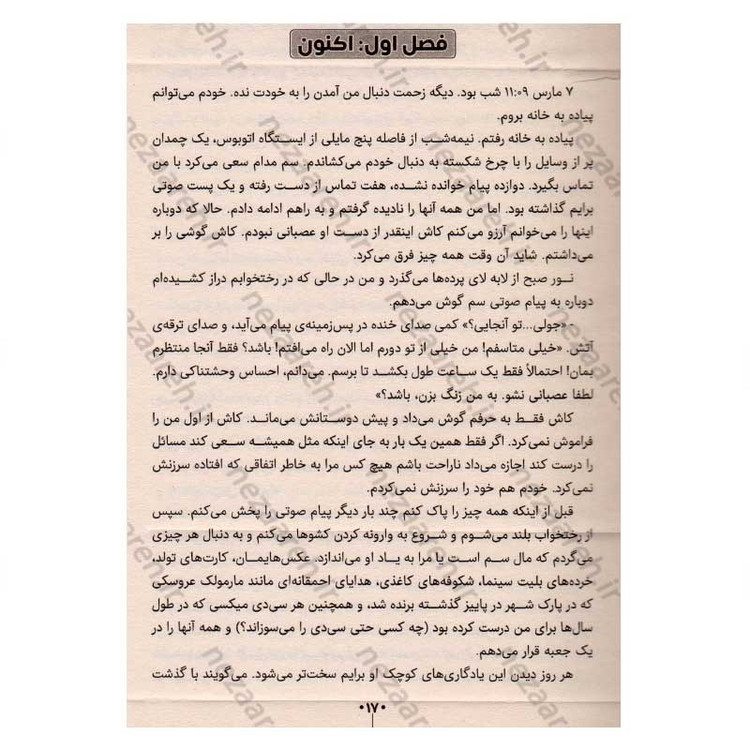 فصل اول: اکنون
۷ مارس ۱۱:۰۹ شب بود. دیگه زحمت دنبال من آمدن را به خودت نده. خودم می‌توانم
پیاده به خانه بروم.
پیاده به خانه رفتم. نیمه‌شب از فاصله پنج مایلی از ایستگاه اتوبوس، یک چمدان
پر از وسایل را با چرخ شکسته به دنبال خودم می‌کشاندم. سم مدام سعی می‌کرد با من
تماس بگیرد. دوازده پیام خوانده نشده، هفت تماس از دست رفته و یک پست صوتی
برایم گذاشته بود. اما من همه آنها را نادیده گرفتم و به راهم ادامه دادم. حالا که دوباره
اینها را می‌خوانم آرزو می‌کنم کاش اینقدر از دست او عصبانی نبودم. کاش گوشی را بر
می‌داشتم. شاید آن وقت همه چیز فرق می‌کرد.
نور صبح از لابه لای پرده‌ها می‌گذرد و من در حالی که در رختخوابم دراز کشیده‌ام
دوباره به پیام صوتی سم گوش می‌دهم.
- «جولی...تو آنجایی؟» کمی صدای خنده در پس‌زمینه‌ی پیام می‌آید، و صدای ترقه‌ی
آتش. «خیلی متاسفم! من خیلی از تو دورم اما الان راه می‌افتم! باشد؟ فقط آنجا منتظرم
بمان! احتمالاً فقط یک ساعت طول بکشد تا برسم. می‌دانم، احساس وحشتناکی دارم.
لطفا عصبانی نشو. به من زنگ بزن، باشد؟»
کاش فقط به حرفم گوش می‌داد و پیش دوستانش می‌ماند. کاش از اول من را
فراموش نمی‌کرد. اگر فقط همین یک بار به جای اینکه مثل همیشه سعی کند مسائل
را درست کند اجازه می‌داد ناراحت باشم هیچ کس مرا به خاطر اتفاقی که افتاده سرزنش
نمی‌کرد. خودم هم خود را سرزنش نمی‌کردم.
قبل از اینکه همه چیز را پاک کنم چند بار دیگر پیام صوتی را پخش می‌کنم. سپس
از رختخواب بلند می‌شوم و شروع به وارونه کردن کشوها می‌کنم و به دنبال هر چیزی
می‌گردم که مال سم است یا مرا به یاد او می‌اندازد. عکس‌هایمان، کارت‌های تولد،
خرده‌های بلیت سینما، شکوفه‌های کاغذی، هدایای احمقانه‌ای مانند مارمولک عروسکی
که در پارک شهر در پاییز گذشته برنده شد، و همچنین هر سی‌دی میکسی که در طول
سال‌ها برای من درست کرده بود (چه کسی حتی سی‌دی را می‌سوزاند؟) و همه آنها را در
یک جعبه قرار می‌دهم.
هر روز دیدن این یادگاری‌های کوچک او برایم سخت‌تر می‌شود. می‌گویند با گذشت
•۱۷•
nezaareh.ir